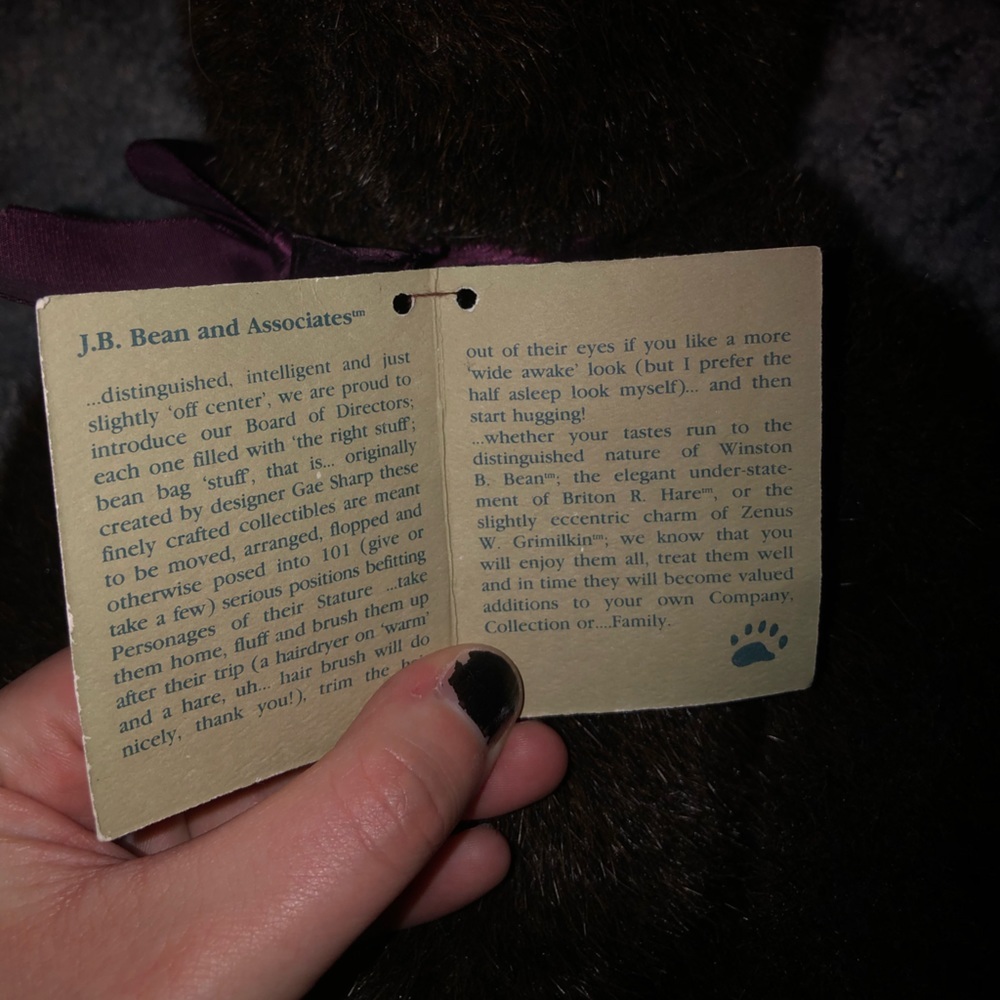 J.B. Bean and Associates™
...distinguished, intelligent and just
slightly 'off center', we are proud to
introduce our Board of Directors;
each one filled with 'the right stuff';
bean bag 'stuff', that is... originally
created by designer Gae Sharp these
finely crafted collectibles are meant
to be moved, arranged, flopped and
otherwise posed into 101 (give or
take a few) serious positions befitting
Personages of their Stature ...take
them home, fluff and brush them up
after their trip (a hairdryer on 'warm'
and a hare, uh... hair brush will do
nicely, thank you!), trim the
out of their eyes if you like a more
'wide awake' look (but I prefer the
half asleep look myself)... and then
start hugging!
...whether your tastes run to the
distinguished nature of Winston
B. Bean™; the elegant under-state-
ment of Briton R. Hare™, or the
slightly eccentric charm of Zenus
W. Grimilkin™; we know that you
will enjoy them all, treat them well
and in time they will become valued
additions to your own Company,
Collection or....Family.